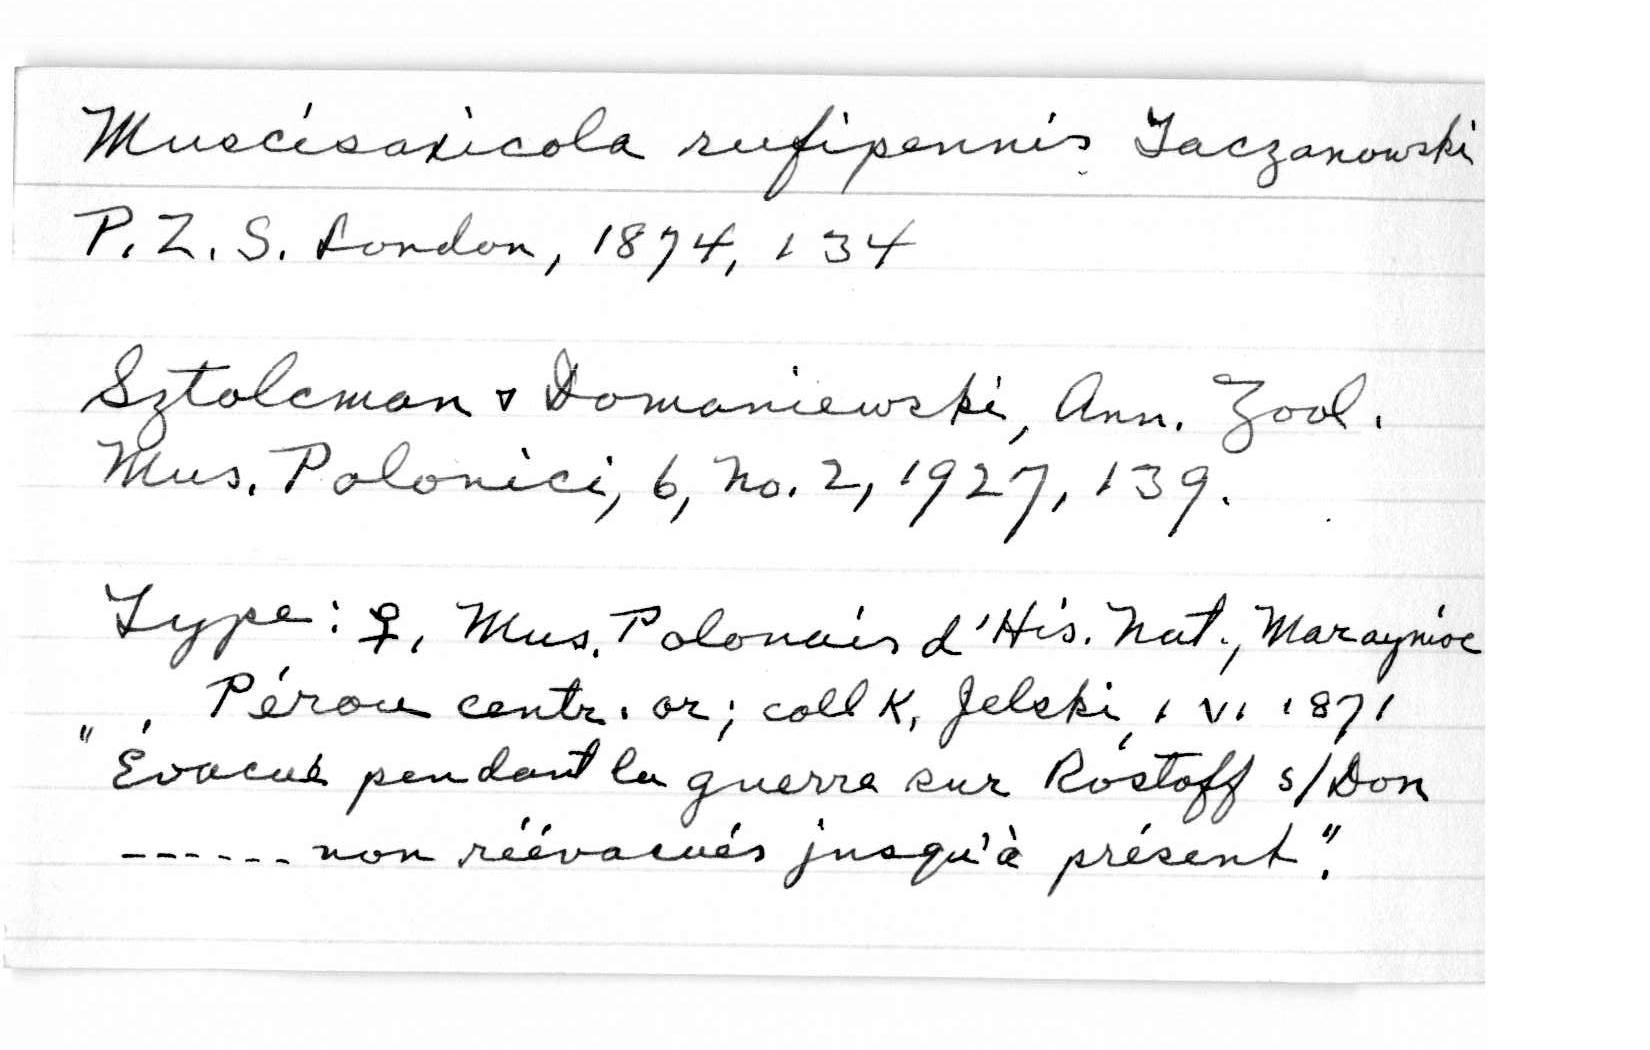 Muscisaxicola rufipennis Taczanowski
P. Z. S. London, 1874, 134
Sztolcman & Domaniewski, Ann. Zool.
Mus. Polonici, 6, No. 2, 1927, 139.
Type: ♀, Mus. Polonais d'His. Nat., Maraynioc
Pérou centr. or; coll K. Jelski, 1 VI 1871
"Évacué pendant la guerre sur Rostoff s/Don
------ non réévacués jusqu'à présent".